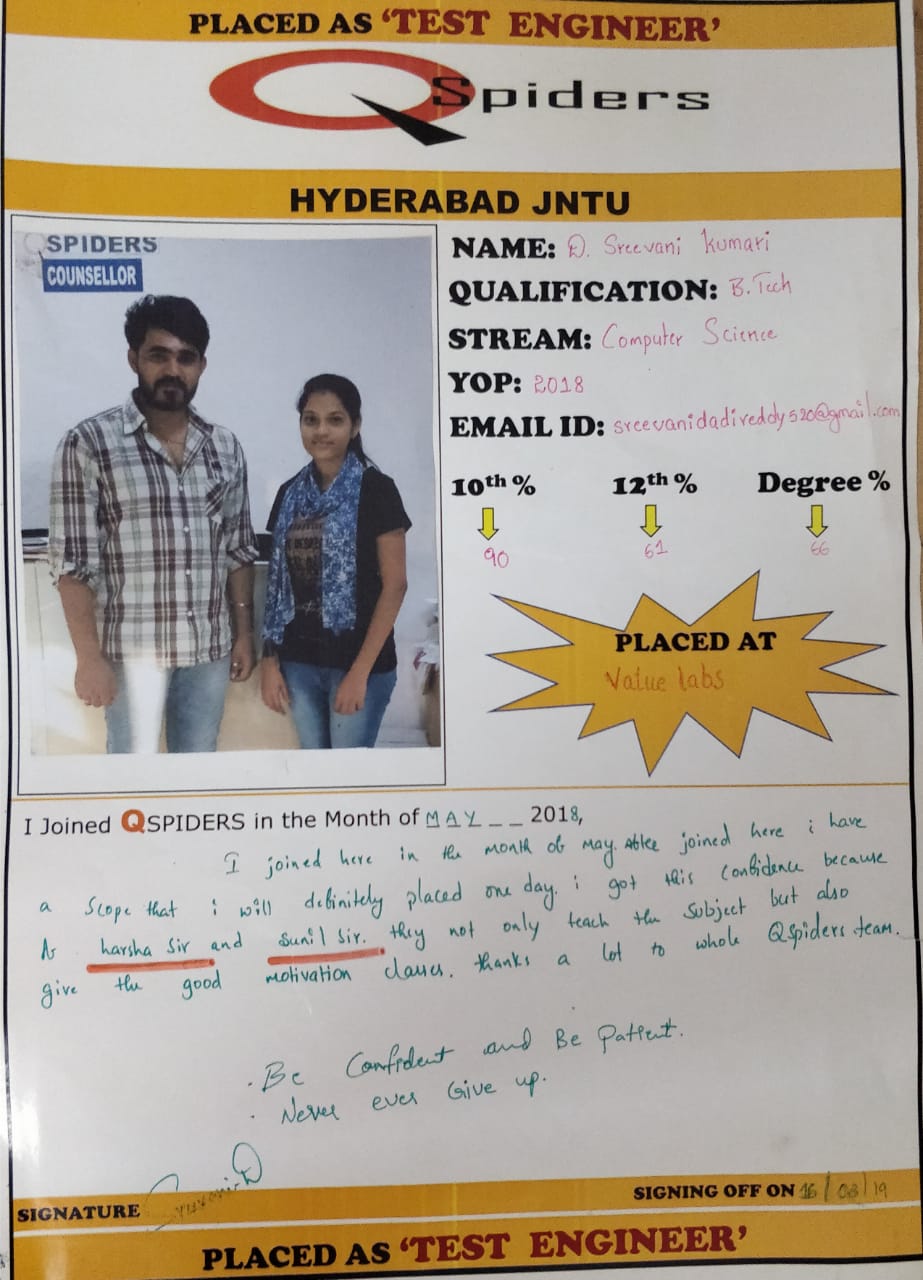 PLACED AS ‘TEST ENGINEER’
QSpiders
HYDERABAD JNTU
QSPIDERS
COUNSELLOR
NAME: D. Sreevani Kumari
QUALIFICATION: B.Tech
STREAM: Computer Science
YOP: 2018
EMAIL ID: sreevanidadireddy520@gmail.com
10th % 12th % Degree %
90 61 66
PLACED AT
Value labs
I Joined QSPIDERS in the Month of MAY _ _ 2018,
I joined here in the month of May. After joined here i have
a scope that i will definitely placed one day. i got this confidence because
of harsha Sir and Sunil Sir. they not only teach the subject but also
give the good motivation classes. thanks a lot to whole Qspiders team.
· Be Confident and Be Patient.
· Never ever Give up.
Sreevani.D
SIGNATURE
SIGNING OFF ON 16/03/19
PLACED AS ‘TEST ENGINEER’